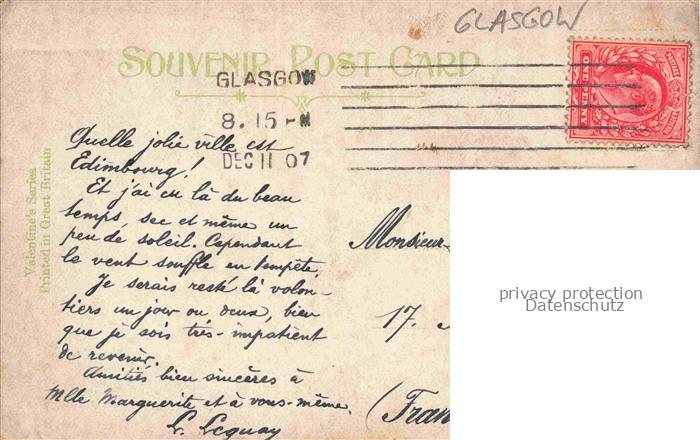 GLASGOW
SOUVENIR POST CARD
GLASGOW
8.15 PM
DEC 11 07
POSTAGE
REVENUE
ONE PENNY
Valentine's Series
Printed in Great Britain
Quelle jolie ville est
Edimbourg!
Et j'ai eu là du beau
temps, sec et même un
peu de soleil. Cependant
le vent souffle en tempête.
Je serais resté là volon-
tiers un jour ou deux, bien
que je sois très-impatient
de revenir.
Amitiés bien sincères à
Mlle Marguerite et à vous-même.
Monsieur
17.
(Fran
privacy protection
Datenschutz